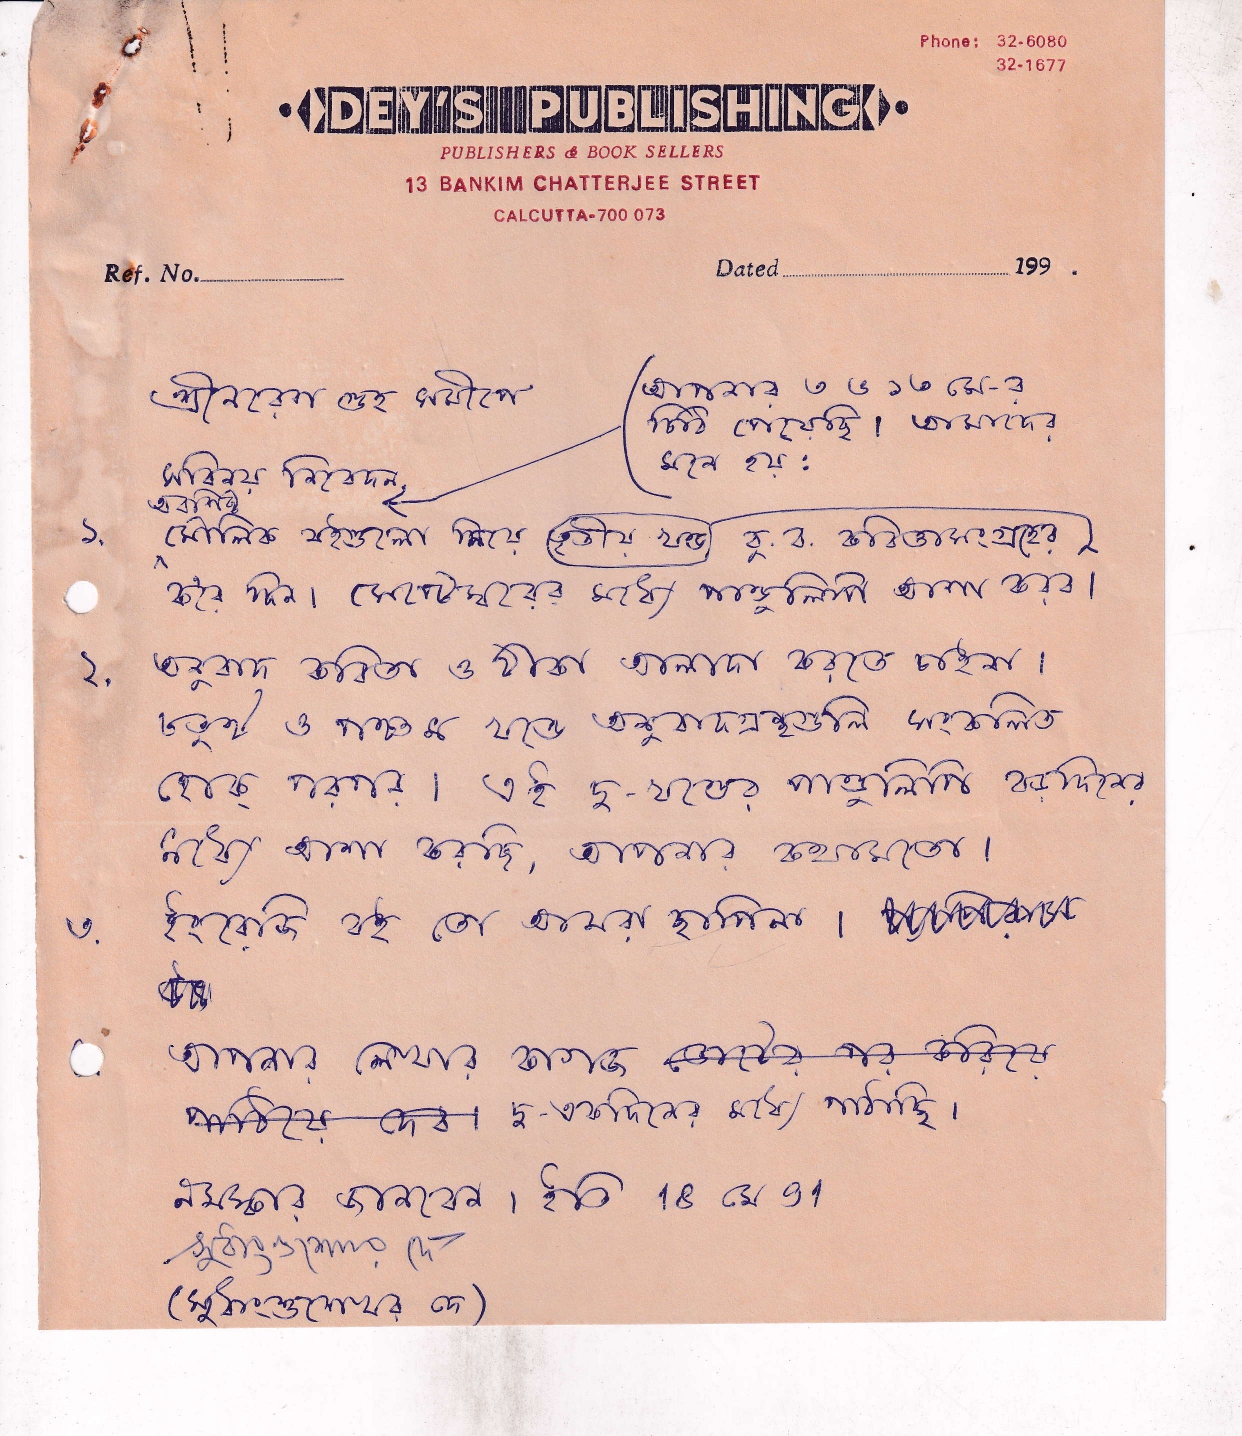 Phone: 32-6080
32-1677
DEY'S PUBLISHING
PUBLISHERS & BOOK SELLERS
13 BANKIM CHATTERJEE STREET
CALCUTTA-700 073
Ref. No.
Dated 199 .
শ্রীনরেশ গুহ সমীপে
আপনার ৩ ও ১৩ মে-র
চিঠি পেয়েছি। আমাদের
মনে হয়:
সবিনয় নিবেদন,
অবশিষ্ট
১. মৌলিক বইগুলো নিয়ে তৃতীয় খণ্ড বু. ব. কবিতাসংগ্রহের
করে দিন। সেপ্টেম্বরের মধ্যে পাণ্ডুলিপি আশা করব।
২. অনুবাদ কবিতা ও টীকা আলাদা করতে চাইনা।
চতুর্থ ও পঞ্চম খণ্ডে অনুবাদগ্রন্থগুলি সংকলিত
হোক্ পরপর। এই দু-খণ্ডের পাণ্ডুলিপি বড়দিনের
মধ্যে আশা করছি, আপনার কথামতো।
৩. ইংরেজি বই তো আমরা ছাপিনা।
আপনার লেখার কাগজ ভোটের পর করিয়ে
পাঠিয়ে দেব। দু-একদিনের মধ্যে পাঠাচ্ছি।
নমস্কার জানবেন। ইতি 18 মে 91
সুধাংশুশেখর দে
(সুধাংশুশেখর দে)